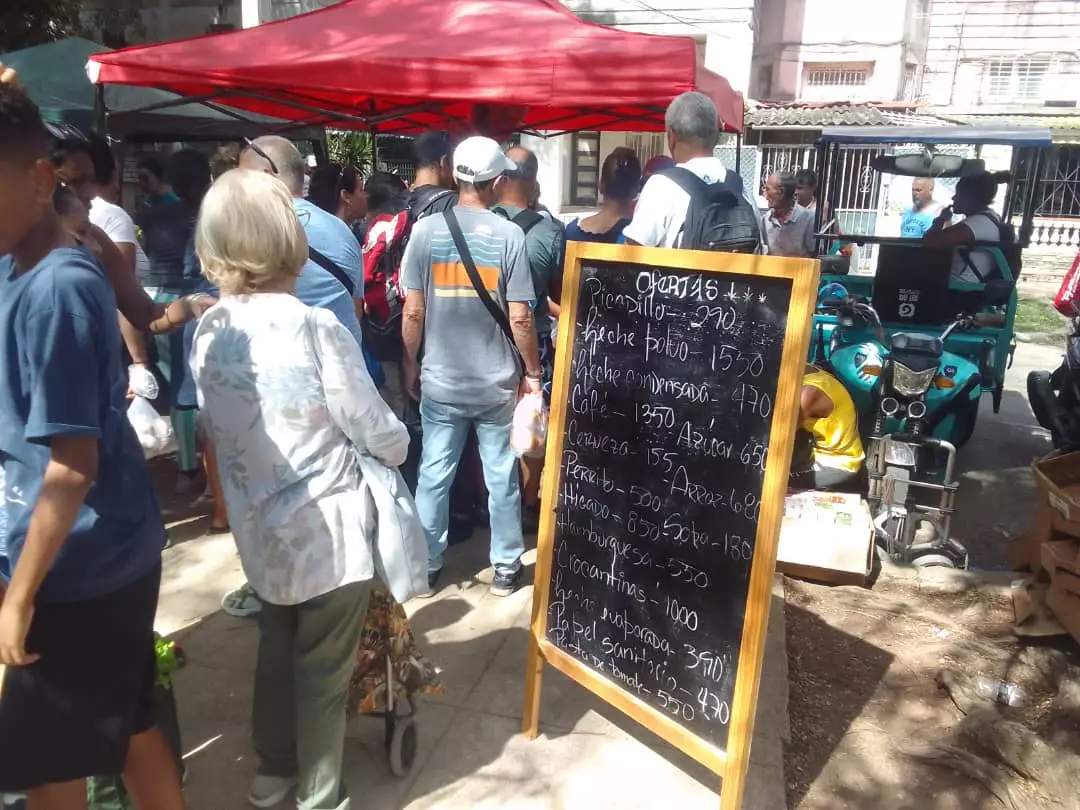 OFERTAS ***
Picadillo - 290
Leche polvo - 1550
Leche condensada - 470
Café - 1350 Azúcar 650
Cerveza - 155
Arroz - 680
Perrito - 500
Hígado - 850 Sopa - 180
Hamburguesa - 550
Crocantinas - 1000
Leche evaporada - 390
Papel sanitario - 470
Pasta de tomate - 550